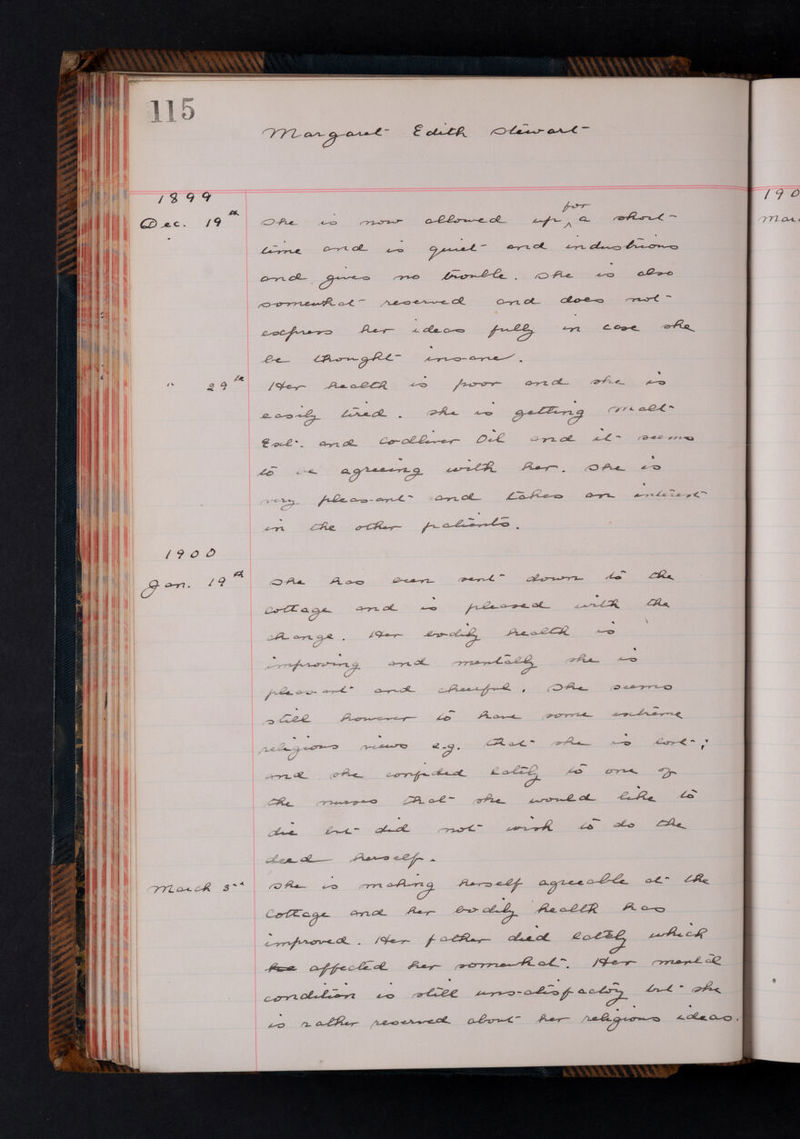 115
Margaret Edith Stewart
1899
Dec. 19th She is now allowed up for a short
time and is quiet and industrious
and gives no trouble. She is also
somewhat reserved and does not
express her ideas fully in case she
be thought insane.
" 29th Her health is poor and she is
easily tired. she is getting malt
Ext. and Codliver Oil and it seems
to be agreeing with her. She is
very pleasant and takes an interest
in the other patients.
1900
Jan. 19th She has been sent down to the
Cottage and is pleased with the
change. Her bodily health is
improving and mentally she is
pleasant and cheerful. She seems
still however to have some extreme
religious views e.g. that she is lost;
and she confided lately to one of
the nurses that she would like to
die but did not wish to do the
deed herself.
March 3rd She is making herself agreeable at the
Cottage and her bodily health has
improved. Her father died lately which
affected her somewhat. Her mental
condition is still unsatisfactory but she
is rather reserved about her religious ideas.
190
Mar